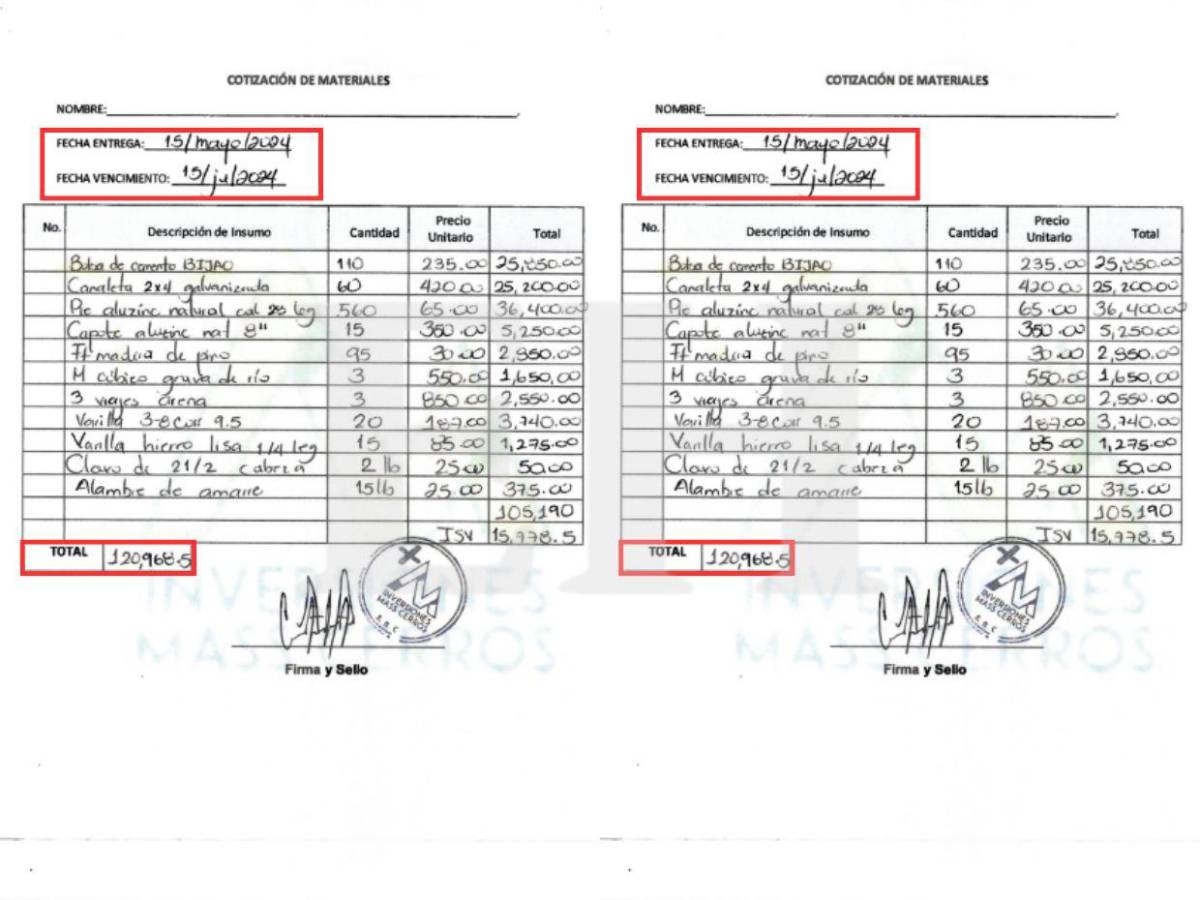 COTIZACIÓN DE MATERIALES
NOMBRE:
FECHA ENTREGA: 15/mayo/2024
FECHA VENCIMIENTO: 15/jul/2024
No. Descripción de Insumo Cantidad Precio Unitario Total
Bolsa de cemento BIJAO 110 235.00 25,850.00
Canaleta 2x4 galvanizada 60 420.00 25,200.00
Pie aluzinc natural cal 28 leg 560 65.00 36,400.00
Capote aluzinc nat 8" 15 350.00 5,250.00
Ft madera de pino 95 30.00 2,850.00
M cúbico grava de río 3 550.00 1,650.00
3 viajes arena 3 850.00 2,550.00
Varilla 3-8 corr 9.5 20 187.00 3,740.00
Varilla hierro lisa 1/4 leg 15 85.00 1,275.00
Clavo de 21/2 cabeza 2 lb 25.00 50.00
Alambre de amarre 15lb 25.00 375.00
105,190
ISV 15,778.5
TOTAL 120,968.5
INVERSIONES
MASS CERROS
INVERSIONES
MASS CERROS
Firma y Sello
COTIZACIÓN DE MATERIALES
NOMBRE:
FECHA ENTREGA: 15/mayo/2024
FECHA VENCIMIENTO: 15/jul/2024
No. Descripción de Insumo Cantidad Precio Unitario Total
Bolsa de cemento BIJAO 110 235.00 25,850.00
Canaleta 2x4 galvanizada 60 420.00 25,200.00
Pie aluzinc natural cal 28 leg 560 65.00 36,400.00
Capote aluzinc nat 8" 15 350.00 5,250.00
Ft madera de pino 95 30.00 2,850.00
M cúbico grava de río 3 550.00 1,650.00
3 viajes arena 3 850.00 2,550.00
Varilla 3-8 corr 9.5 20 187.00 3,740.00
Varilla hierro lisa 1/4 leg 15 85.00 1,275.00
Clavo de 21/2 cabeza 2 lb 25.00 50.00
Alambre de amarre 15lb 25.00 375.00
105,190
ISV 15,778.5
TOTAL 120,968.5
INVERSIONES
MASS CERROS
INVERSIONES
MASS CERROS
Firma y Sello